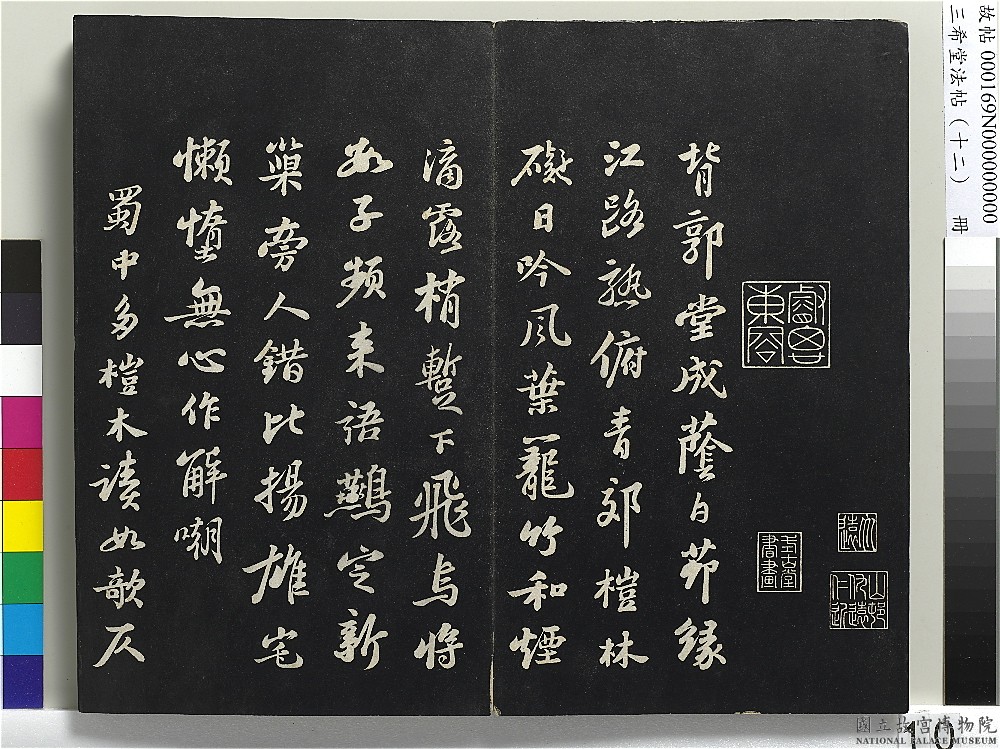 故帖 000169N000000000
三希堂法帖（十二） 冊
背郭堂成蔭白茆緣
江路熟俯青郊榿林
礙日吟風葉籠竹和煙
滴露梢暫下飛烏將
數子頻來語鷰定新
巢旁人錯比揚雄宅
懶惰無心作解嘲
蜀中多榿木讀如欹仄
書畫
10
國立故宮博物院
NATIONAL PALACE MUSEUM